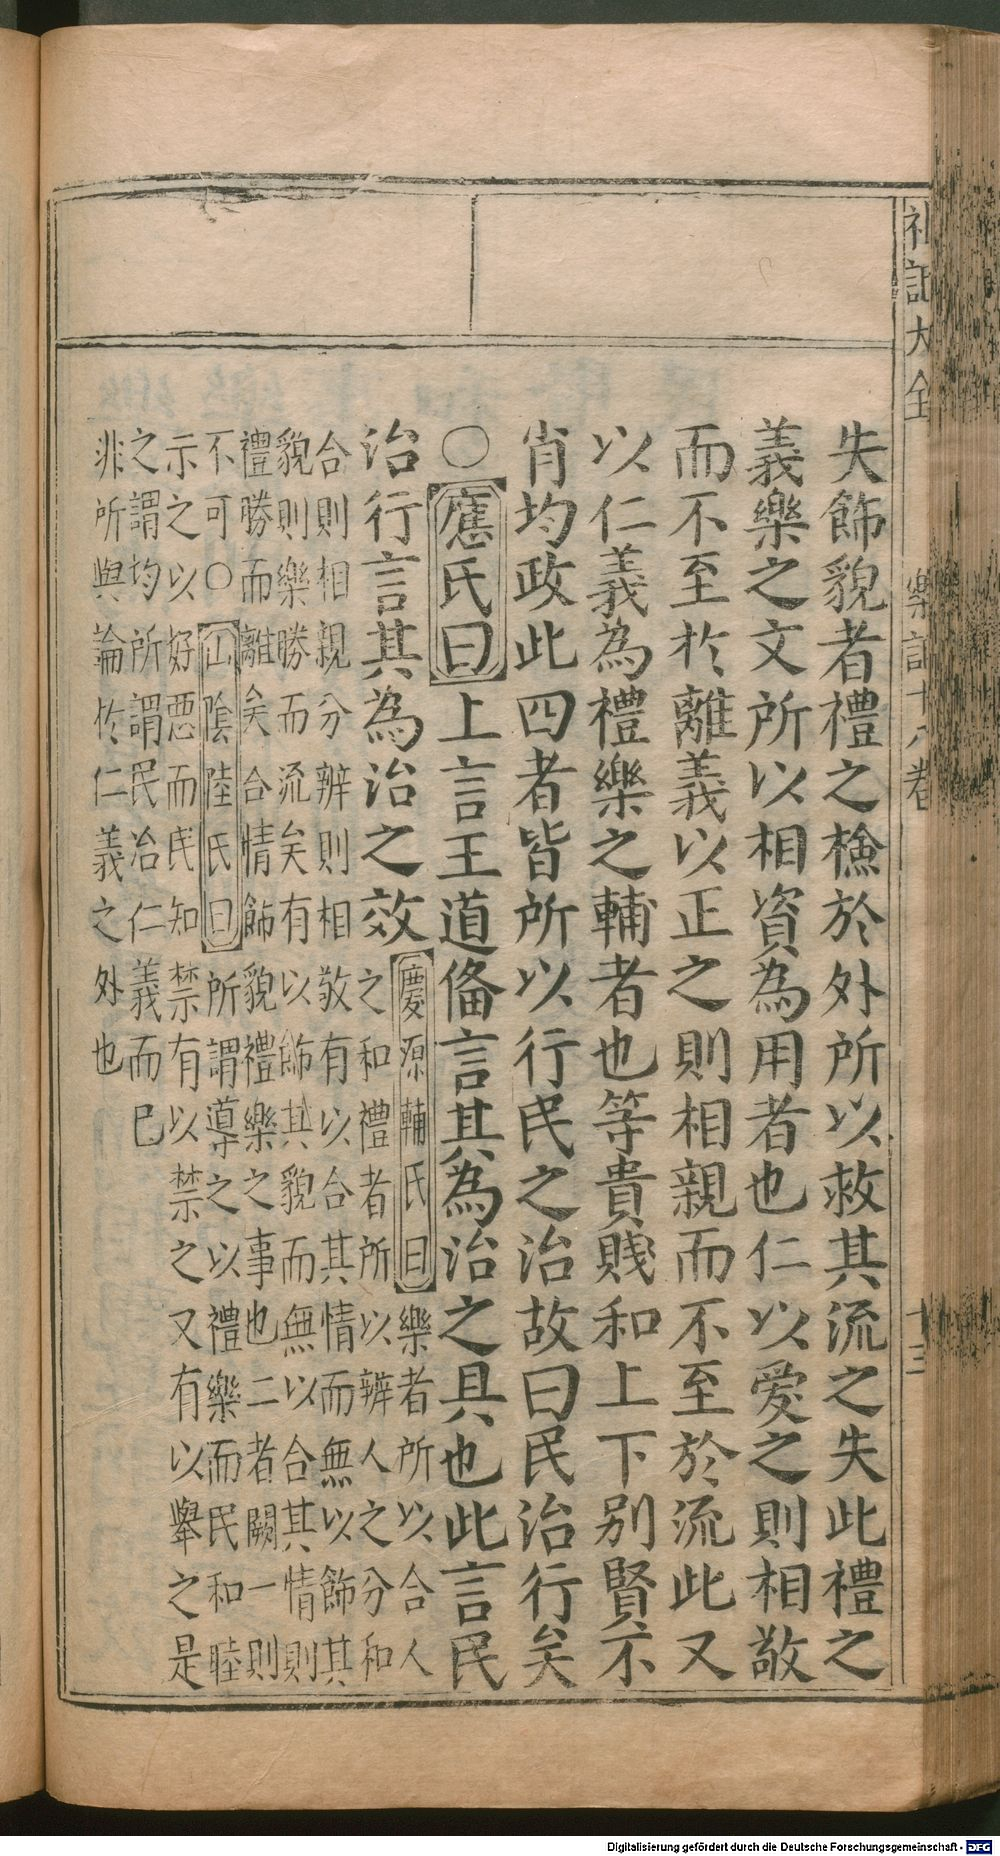 礼記大全 樂記十八卷 十三
失飾貌者禮之檢於外所以救其流之失此禮之
義樂之文所以相資為用者也仁以愛之則相敬
而不至於離義以正之則相親而不至於流此又
以仁義為禮樂之輔者也等貴賤和上下别賢不
肖均政此四者皆所以行民之治故曰民治行矣
○應氏曰上言王道俻言其為治之具也此言民
治行言其為治之效慶源輔氏曰樂者所以合人
之和禮者所以辨人之分和
合則相親分辨則相敬有以合其情而無以飾其
貌則樂勝而流矣有以飾其貌而無以合其情則
禮勝而離矣合情飾貌禮樂之事也二者闕一則
不可○山陰陸氏曰所謂導之以禮樂而民和睦
示之以好惡而民知禁有以禁之又有以舉之是
之謂均所謂民治仁義而已
非所與論於仁義之外也
Digitalisierung gefördert durch die Deutsche Forschungsgemeinschaft - DFG